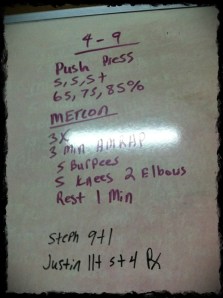 4-9
Push Press
5, 5, 5+
65, 75, 85%
METCON
3X
3 min AMRAP
5 Burpees
5 Knees 2 Elbows
Rest 1 Min
Steph 9+1
Justin 11+5+4 Rx